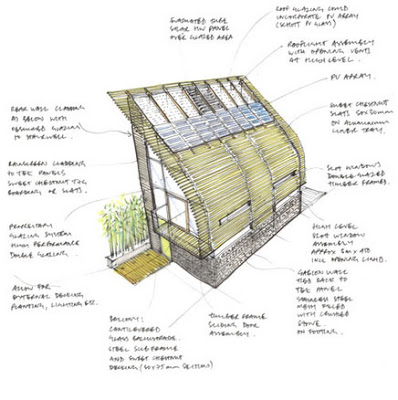 EVACUATED TUBE
SOLAR HW PANEL
OVER GLAZED AREA
ROOF GLAZING COULD
INCORPORATE PV ARRAY
(SCHOTT PV GLASS)
ROOFLIGHT ASSEMBLY
WITH OPENING VENTS
AT HIGH LEVEL.
PV ARRAY.
SWEET CHESTNUT
SLATS 50x50mm
ON ALUMINIUM
LINER TRAY.
REAR WALL CLADDING
AS BELOW WITH
GLAZING
TO STAIRWELL.
RAINSCREEN CLADDING
TO TEK PANELS
SWEET CHESTNUT T&G
BOARDING OR SLATS.
SLOT WINDOWS
DOUBLE GLAZED
TIMBER FRAMES.
PROPRIETARY
GLAZING SYSTEM
HIGH PERFORMANCE
DOUBLE GLAZING.
HIGH LEVEL
SLOT WINDOW
ASSEMBLY
APPROX
INCL OPENING LIGHTS.
ALLOW FOR
EXTERNAL DECKING
PLANTING, LIGHTING ETC.
GABION WALL
TIED BACK TO
TEK PANEL
STAINLESS STEEL
MESH FILLED
WITH CRUSHED
STONE.
ON FOOTING.
BALCONY:
CANTILEVERED
GLASS BALUSTRADE.
STEEL SUB FRAME
AND SWEET CHESTNUT
DECKING (50x75mm SECTIONS)
TIMBER FRAME
SLIDING DOOR
ASSEMBLY.